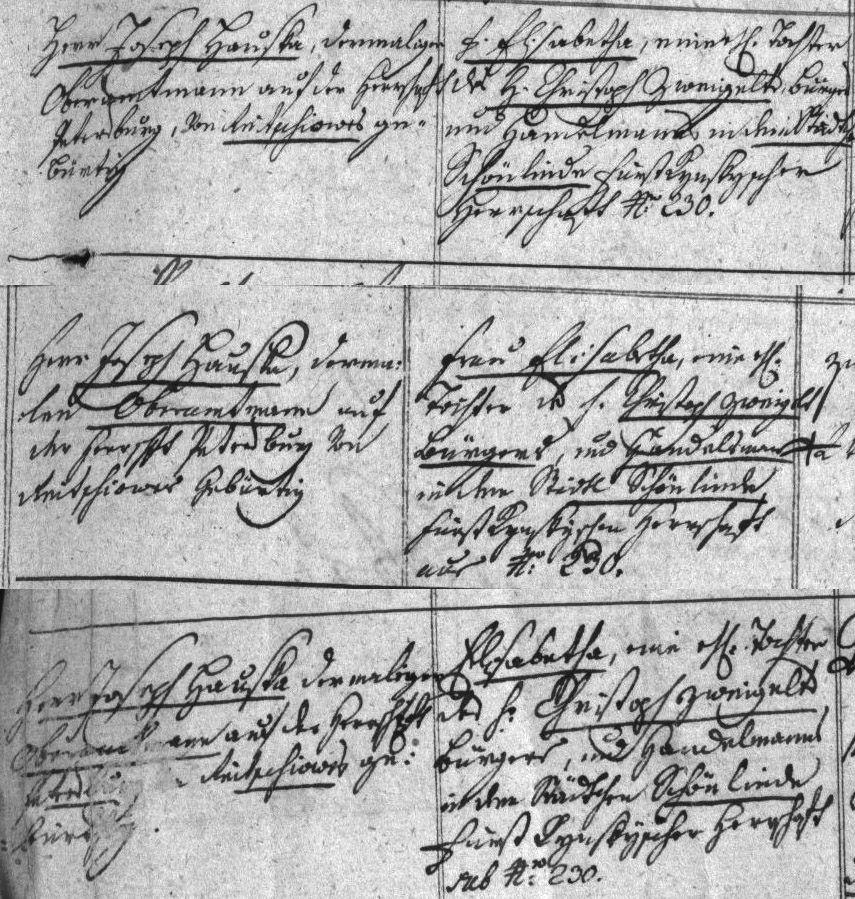 Herr Joseph Hauska, dermaliger
Oberamtmann auf der Herrschaft
Petersburg, von Reitschiowes ge-
bürtig
F. Elisabetha, eine eh. Tochter
des H. Christoph Zweigelts, Bürger
und Handelmanns in dem Städtch
Schönlinde Fürst Kynskyscher
Herrschaft No. 230.
Herr Joseph Hauska, derma-
len Oberamtmann auf
der Herrschft Petersburg von
Reitschiowes gebürtig
Frau Elisabetha, eine eh.
Tochter des H. Christoph Zweigelt
Bürgers, und Handelsmans
in dem Stadtl Schönlinde
Fürst Kynskyschen Herrschaft
aus No. 230.
Herr Joseph Hauska dermaliger
Oberamtmann auf der Herrschaft
Petersburg Reitschiowes ge-
bürtig
Elisabetha, eine eh. Tochter
des H. Christoph Zweigelts
Bürgers, und Handelmanns
in dem Städtchen Schönlinde
Fürst Kynskyscher Herrschaft
sub No. 230.